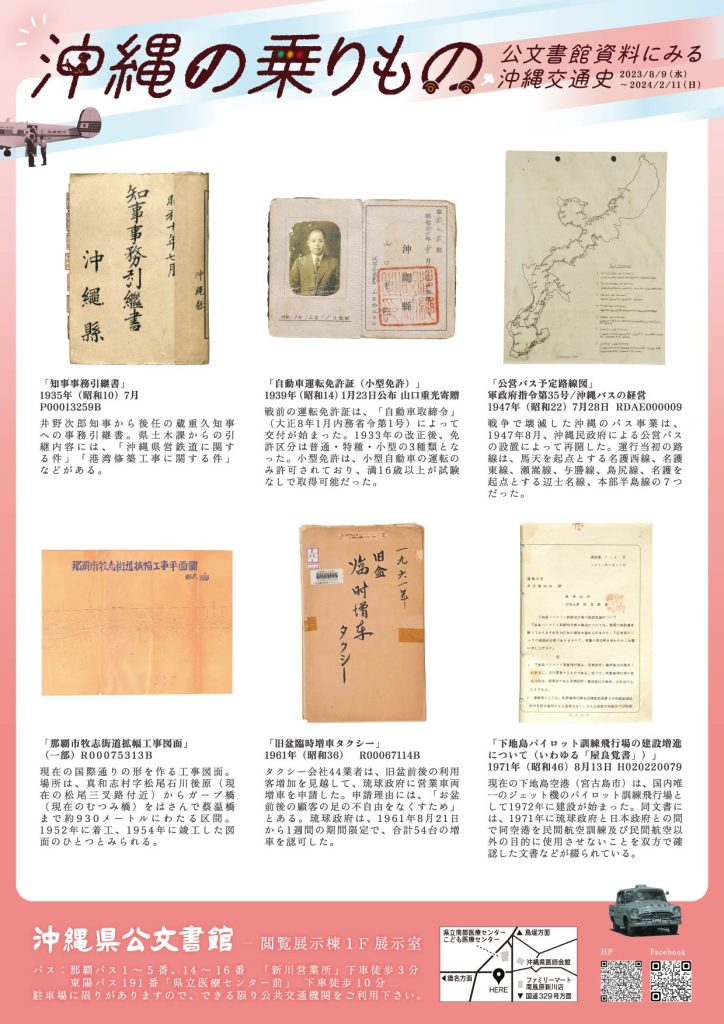 沖縄の乗りもの
公文書館資料にみる
沖縄交通史
2023/8/9(水)
～2024/2/11(日)
昭和十年七月
知事事務引継書
沖縄縣
沖縄縣
「知事事務引継書」
1935年（昭和10）7月
P00013259B
井野次郎知事から後任の蔵重久知事
への事務引継書。県土木課からの引
継内容には、「沖縄県営鉄道に関す
る件」「港湾修築工事に関する件」
などがある。
沖縄縣
「自動車運転免許証（小型免許）」
1939年（昭和14）1月23日公布 山口重光寄贈
戦前の運転免許証は、「自動車取締令」
（大正8年1月内務省令第1号）によって
交付が始まった。1933年の改正後、免
許区分は普通・特種・小型の3種類とな
った。小型免許は、小型自動車の運転の
み許可されており、満16歳以上が試験
なしで取得可能だった。
「公営バス予定路線図」
軍政府指令第35号/沖縄バスの経営
1947年（昭和22）7月28日 RDAE000009
戦争で壊滅した沖縄のバス事業は、
1947年8月、沖縄民政府による公営バス
の設置によって再開した。運行当初の路
線は、馬天を起点とする名護西線、名護
東線、瀬嵩線、与勝線、島尻線、名護を
起点とする辺土名線、本部半島線の７つ
だった。
那覇市牧志街道拡幅工事平面圖
「那覇市牧志街道拡幅工事図面」
（一部）R00075313B
現在の国際通りの形を作る工事図面。
場所は、真和志村字松尾石川後原（現
在の松尾三叉路付近）からガーブ橋
（現在のむつみ橋）をはさんで蔡温橋
まで約930メートルにわたる区間。
1952年に着工、1954年に竣工した図
面のひとつとみられる。
一九六一年
旧盆
臨時増車
タクシー
「旧盆臨時増車タクシー」
1961年（昭和36） R00067114B
タクシー会社44業者は、旧盆前後の利用
客増加を見越して、琉球政府に営業車両
増車を申請した。申請理由には、「お盆
前後の顧客の足の不自由をなくすため」
とある。琉球政府は、1961年8月21日
から1週間の期間限定で、合計54台の増
車を認可した。
「下地島パイロット訓練飛行場の建設増進
について（いわゆる「屋良覚書」）」
1971年（昭和46）8月13日 H020220079
現在の下地島空港（宮古島市）は、国内唯
一のジェット機のパイロット訓練飛行場と
して1972年に建設が始まった。同文書に
は、1971年に琉球政府と日本政府との間
で同空港を民間航空訓練及び民間航空以
外の目的に使用させないことを双方で確
認した文書などが綴られている。
沖縄県公文書館 ― 閲覧展示棟１F 展示室
バス：那覇バス１～５番、14～16番 「新川営業所」下車徒歩３分
東陽バス191番「県立医療センター前」 下車徒歩１０分
駐車場に限りがありますので、できる限り公共交通機関をご利用下さい。
県立南部医療センター
こども医療センター
▲鳥堀方面
沖縄県医師会館
◀識名方面
HERE
ファミリーマート
南風原新川店
▼国道329号方面
HP
Facebook